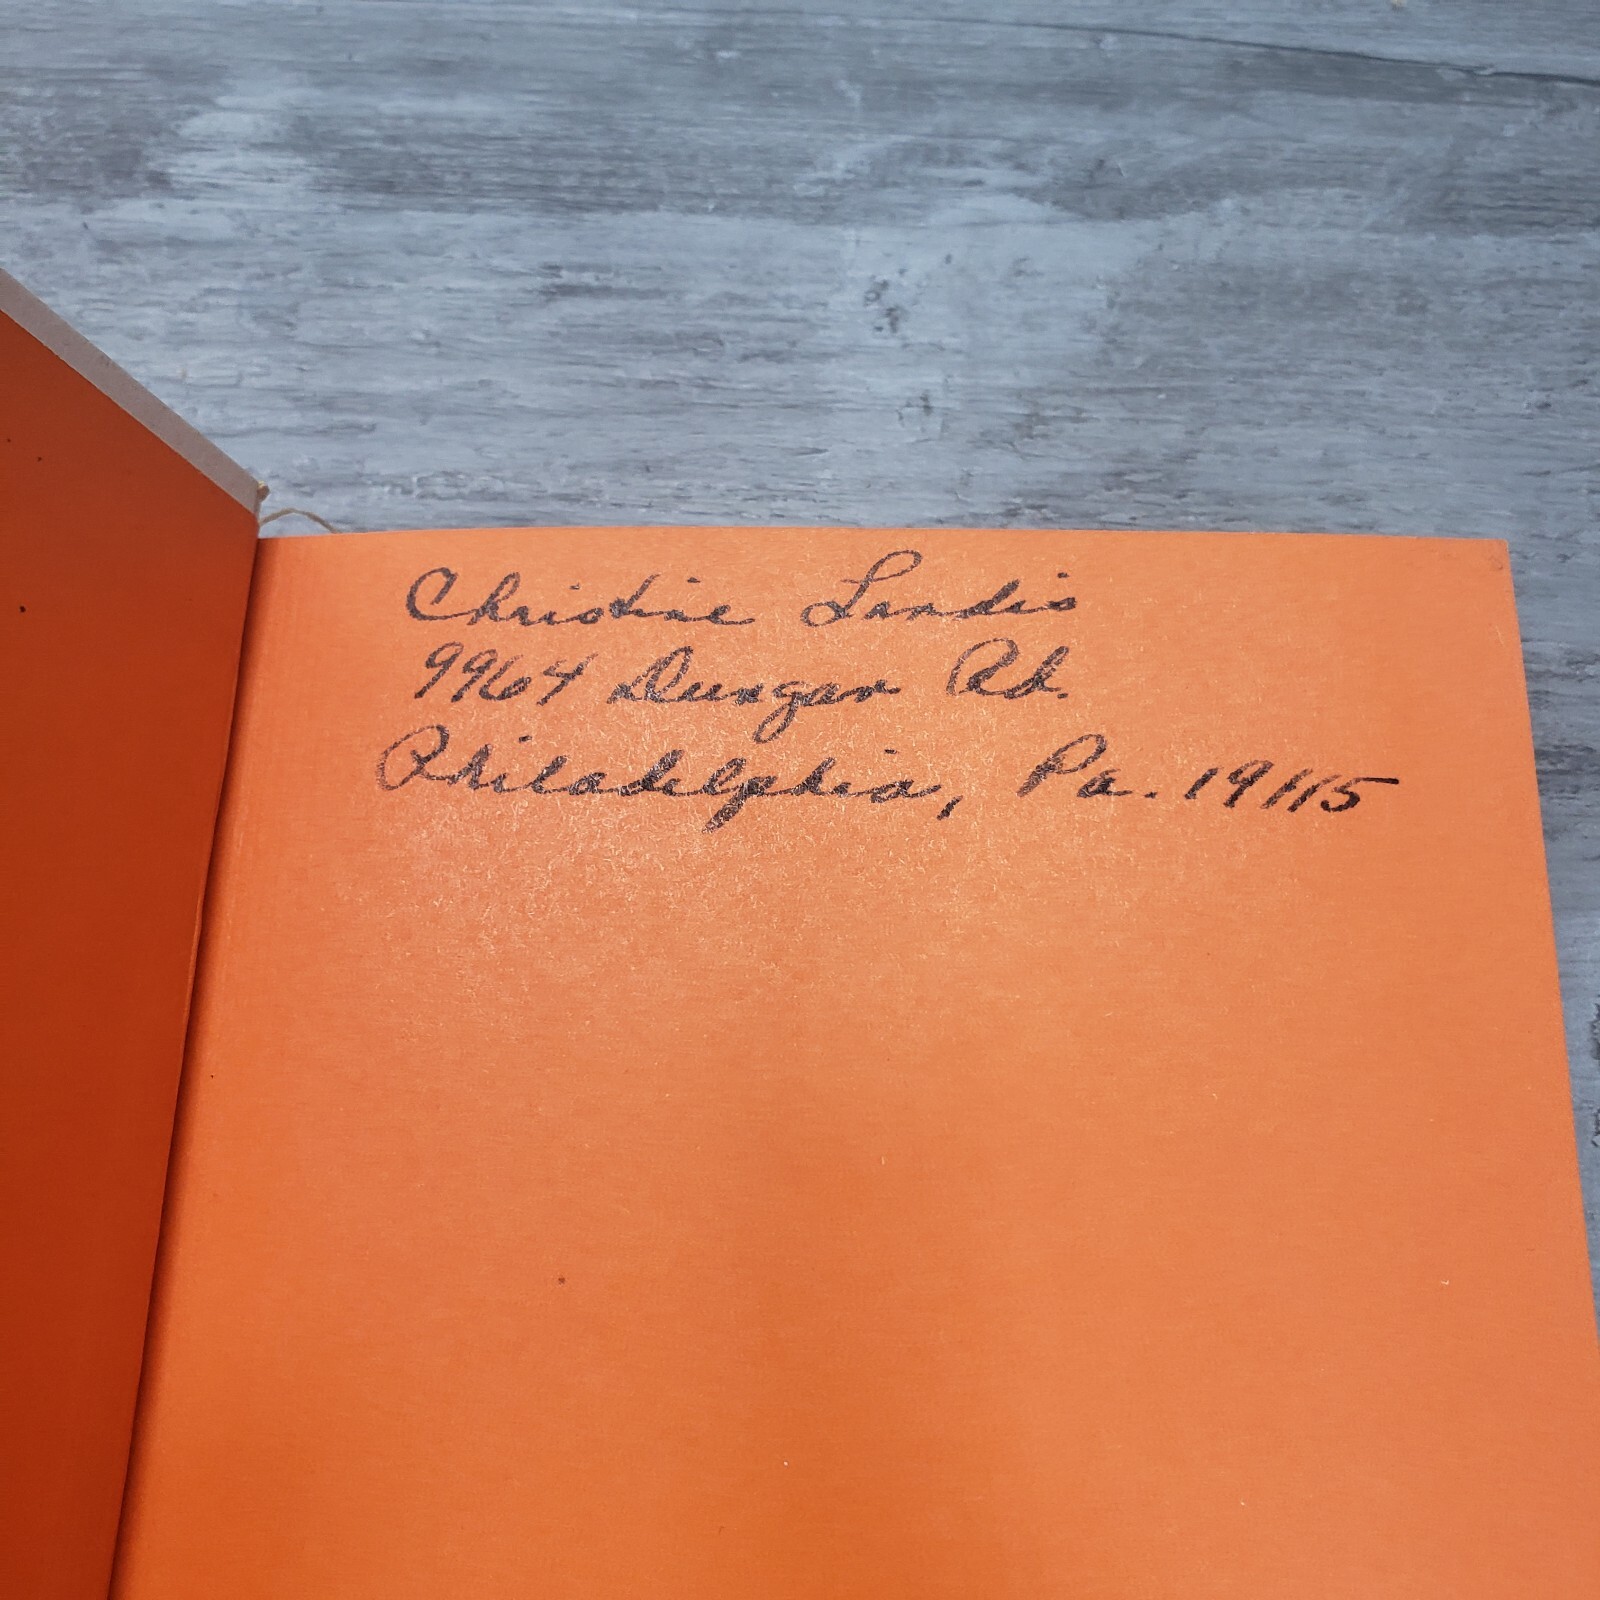 Christine Landis
9964 Dungan Rd.
Philadelphia, Pa. 19115